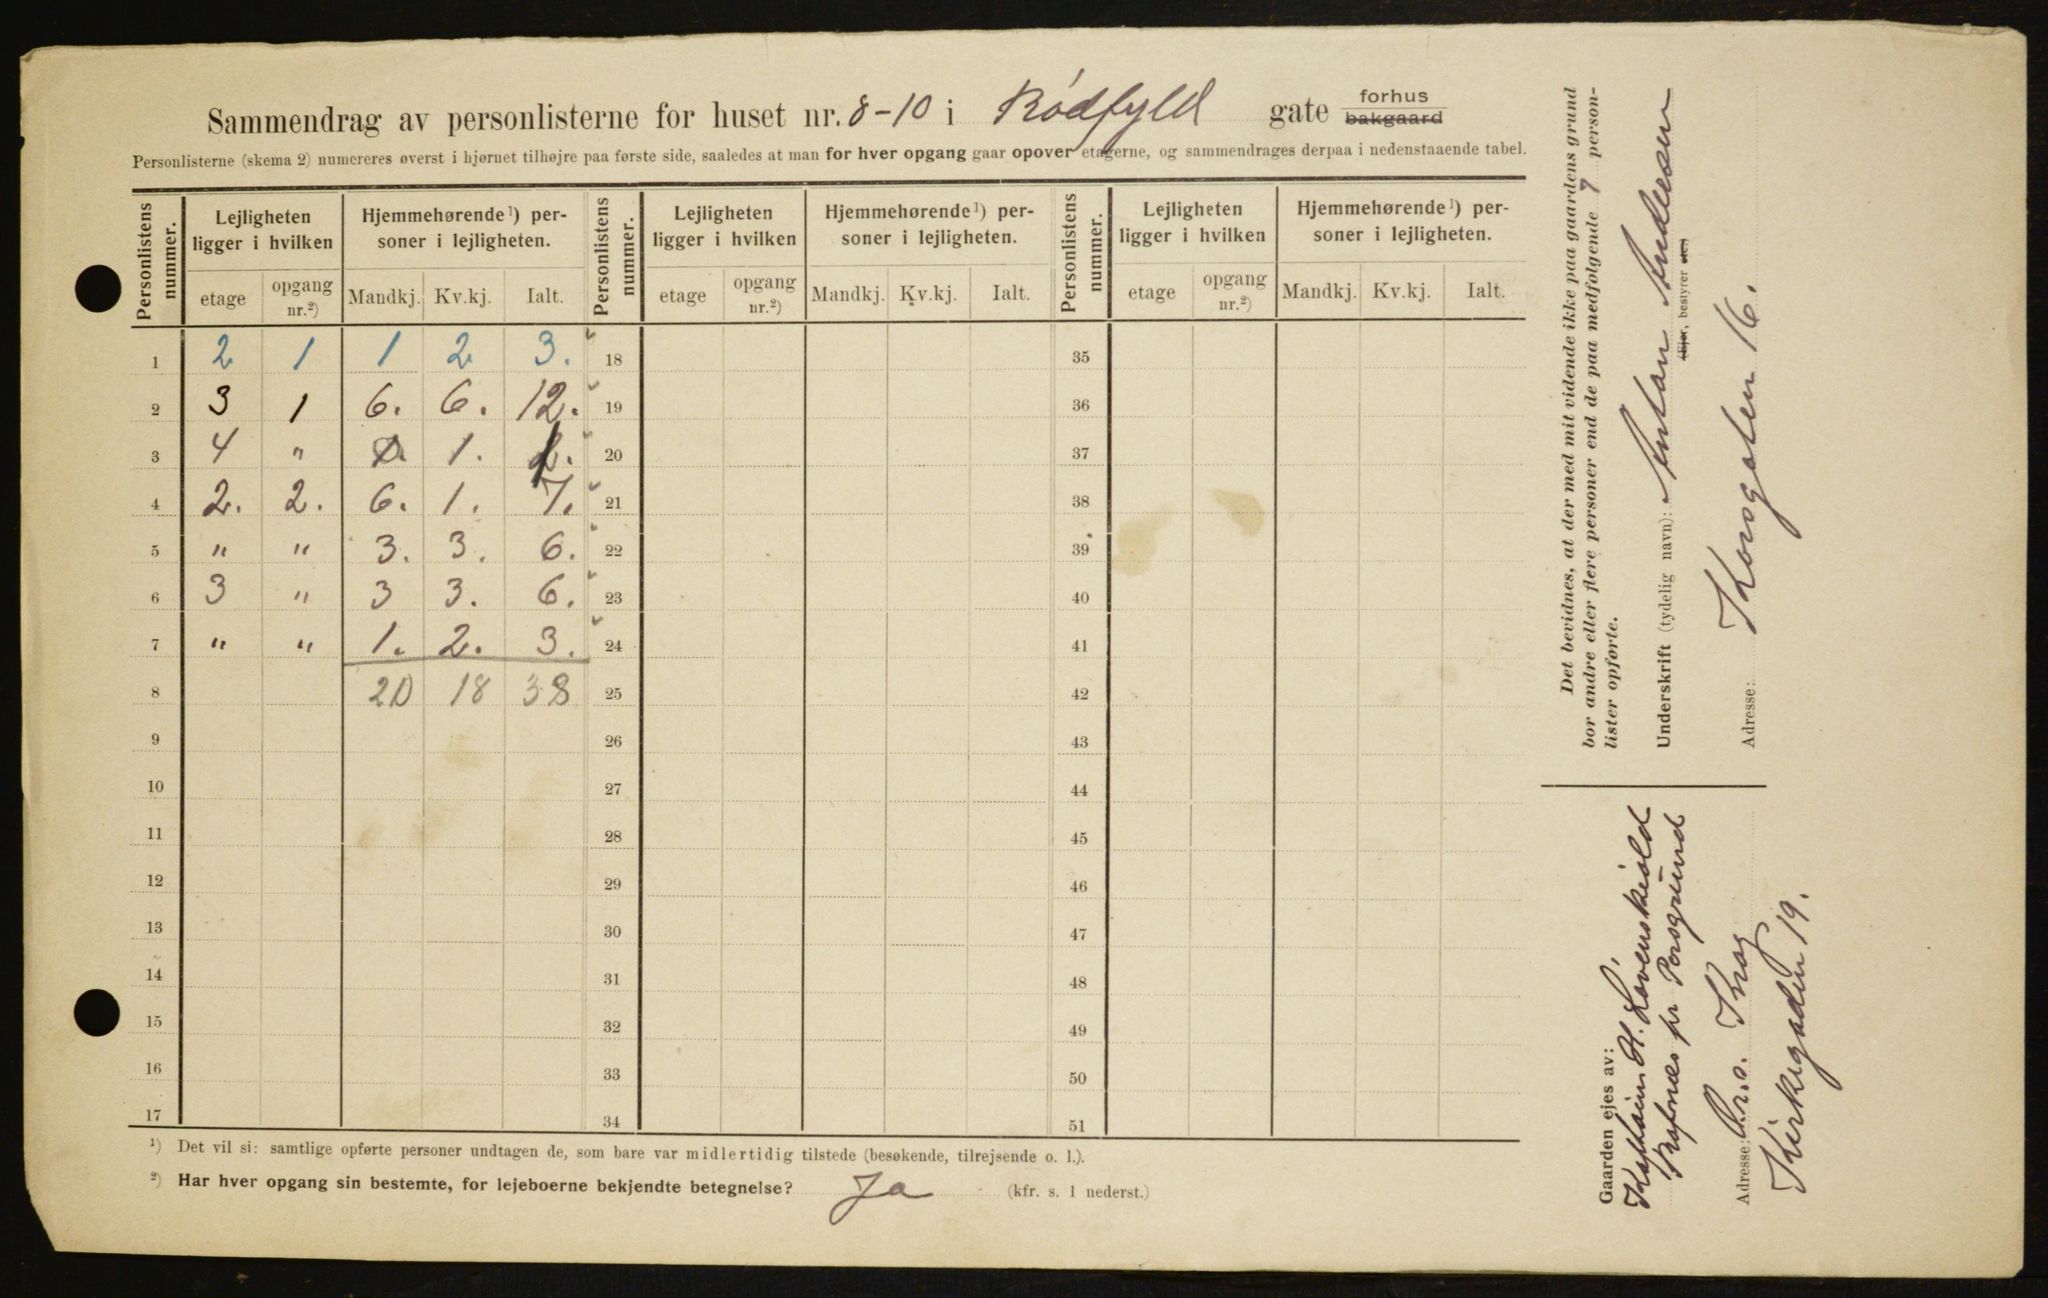 Sammendrag av personlisterne for huset nr. 8-10 i Ródfyld gate forhus bakgaard
Personlisterne (skema 2) numereres øverst i hjørnet tilhøjre paa første side, saaledes at man for hver opgang gaar opover etagerne, og sammendrages derpaa i nedenstaaende tabel.
Personlistens nummer. Lejligheten ligger i hvilken Hjemmehørende ¹) personer i lejligheten. Personlistens nummer. Lejligheten ligger i hvilken Hjemmehørende ¹) personer i lejligheten. Personlistens nummer. Lejligheten ligger i hvilken Hjemmehørende ¹) personer i lejligheten.
etage opgang nr.²) Mandkj. Kv.kj. Ialt. etage opgang nr.²) Mandkj. Kv.kj. Ialt. etage opgang nr.²) Mandkj. Kv.kj. Ialt.
1 2 1 1 2 3. 18 35
2 3 1 6. 6. 12. 19 36
3 4 " 1. 1. 20 37
4 2. 2. 6. 1. 7. 21 38
5 " " 3. 3. 6. 22 39
6 3 " 3 3. 6. 23 40
7 " " 1. 2. 3. 24 41
8 20 18 38 25 42
9 26 43
10 27 44
11 28 45
12 29 46
13 30 47
14 31 48
15 32 49
16 33 50
17 34 51
¹) Det vil si: samtlige opførte personer undtagen de, som bare var midlertidig tilstede (besøkende, tilrejsende o. l.).
²) Har hver opgang sin bestemte, for lejeboerne bekjendte betegnelse? Ja (kfr. s. 1 nederst.)
Det bevidnes, at der med mit vidende ikke paa gaardens grund
bor andre eller flere personer end de paa medfølgende 7 person-
lister opførte.
Underskrift (tydelig navn): Anton Andersen
(Ejer, bestyrer etc.)
Adresse: Korsgaten 16.
Gaarden ejes av:
Kaptain H. Løvenskiold
Rafnæs pr Porsgrund
Adresse: O.r.s. Krag
Kirkegaden 19.